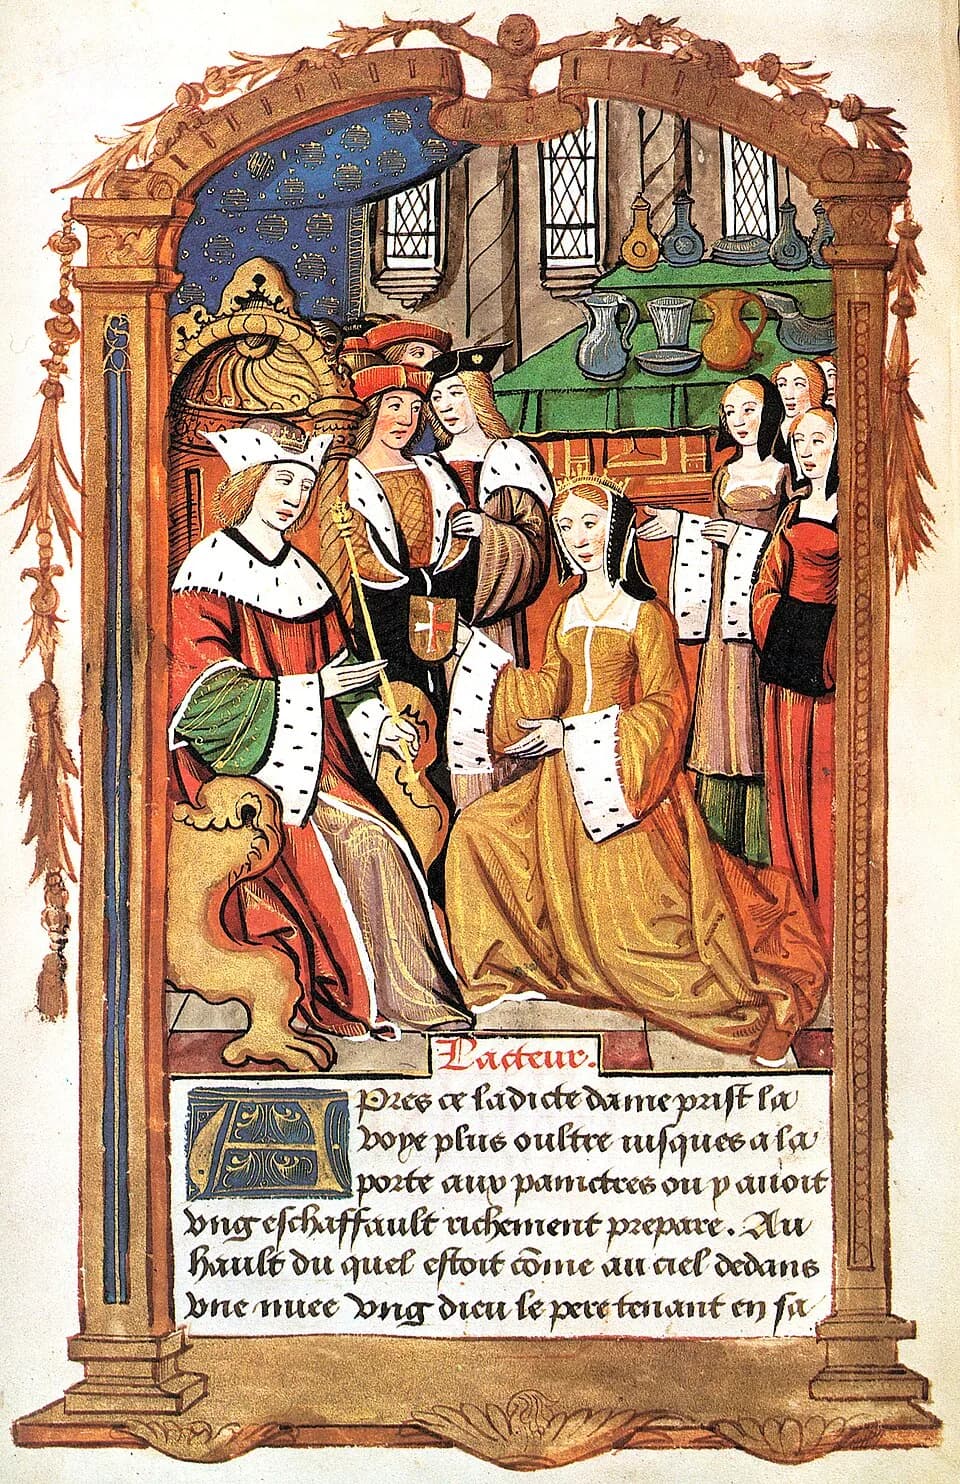 L'acteur.
APres ce ladicte dame prist la
voye plus oultre iusques a la
porte aux painctres ou y auoit
vng eschaffault richement prepare. Au
hault du quel estoit cōme au ciel dedans
vne nuee vng dieu le pere tenant en sa